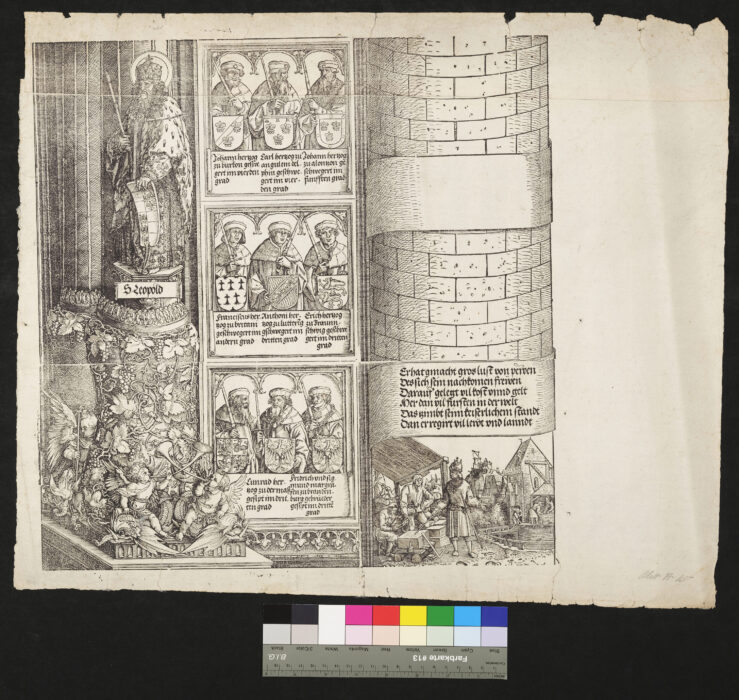 S Leopold
Johann hertzog
zu burbon geswe
gert im vierden
grad
Carl hertzog zu
angulem del
phin geschwe
gert im vier
den grad
Johann hertzog
zu alonzon ge
schwegert im
fünfften grad
Franciscus her
zog zu britani
geschwegert im
andern grad
Anthoni her
zog zu luttering
gschwegert im
dritten grad
Erich hertzog
zu Braun
schweig geschwe
gert im dritten
grad
Cunrad her
zog zu der maß
gesipt im drit
ten grad
Fridrich und sig
mund marggra
ffen zu branden
burg gebruder
gesipt im dritte
grad
Er hat gmacht gros lust von pewen
Des sich sein nachkomen frewen
Darauf gelegt vil kost vnnd gelt
Mer dan vil fursten in der welt
Das zimbt seim keiserlichem standt
Dan er regirt vil lewt vnd lanndt
Farbkarte #13
B.I.G.
Blue
Cyan
Green
Yellow
Red
Magenta
White
3/Color
Black